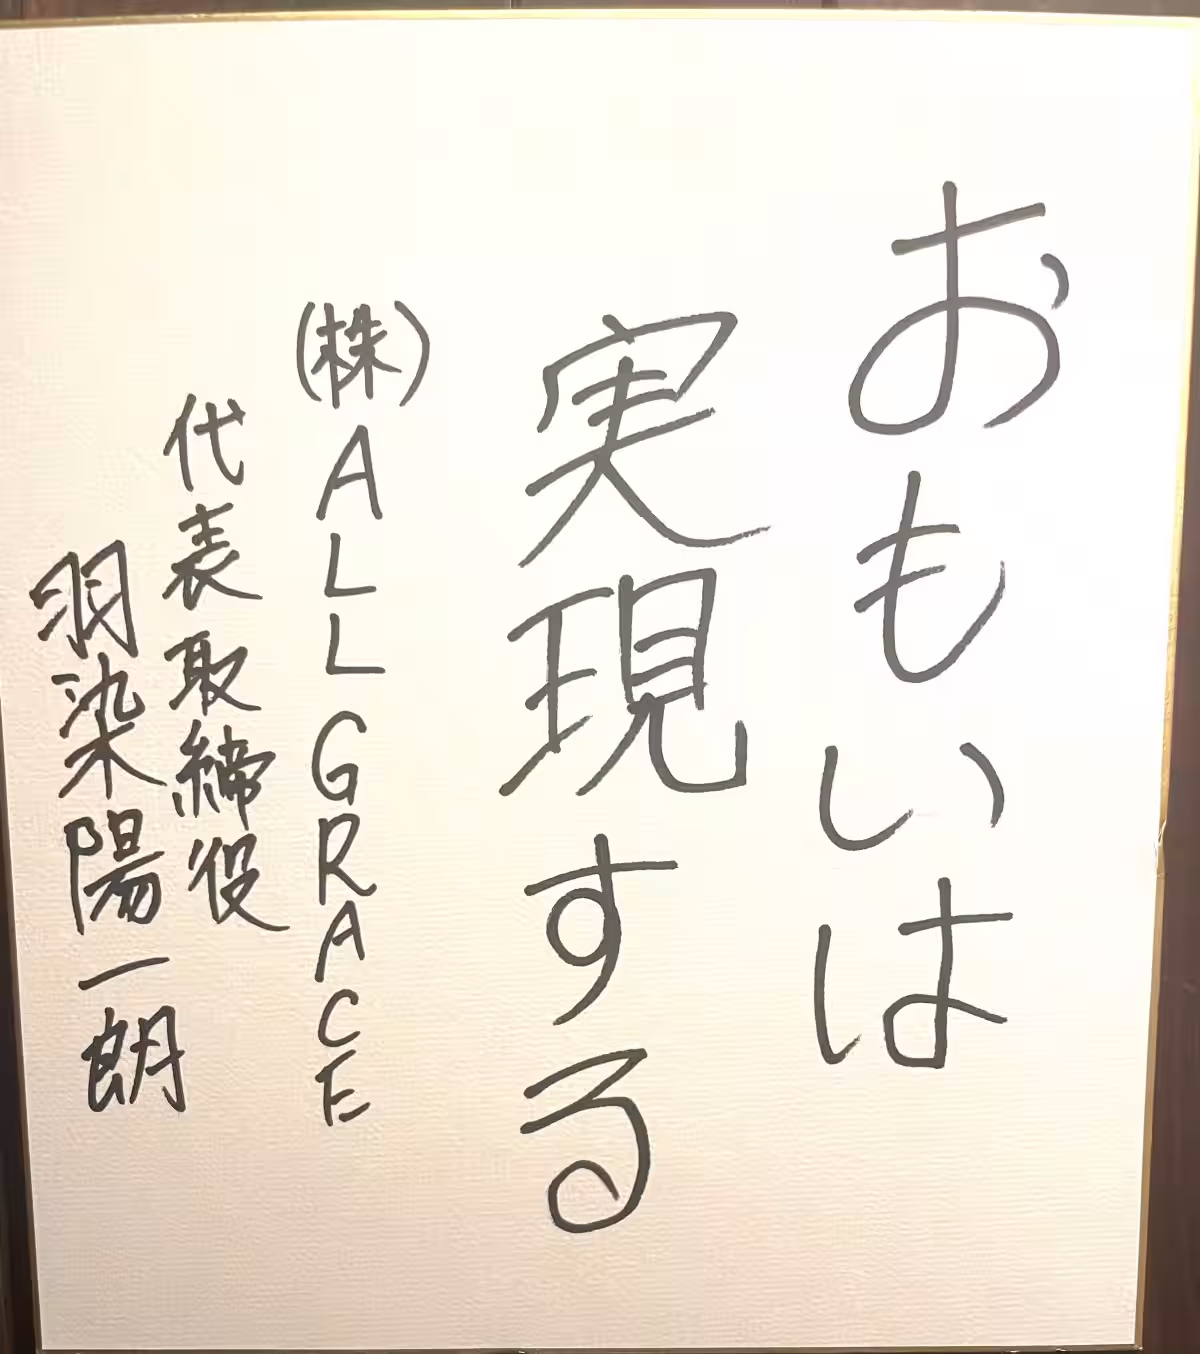 おもいは
実現する
(株)ALL GRACE
代表取締役
羽染陽一朗